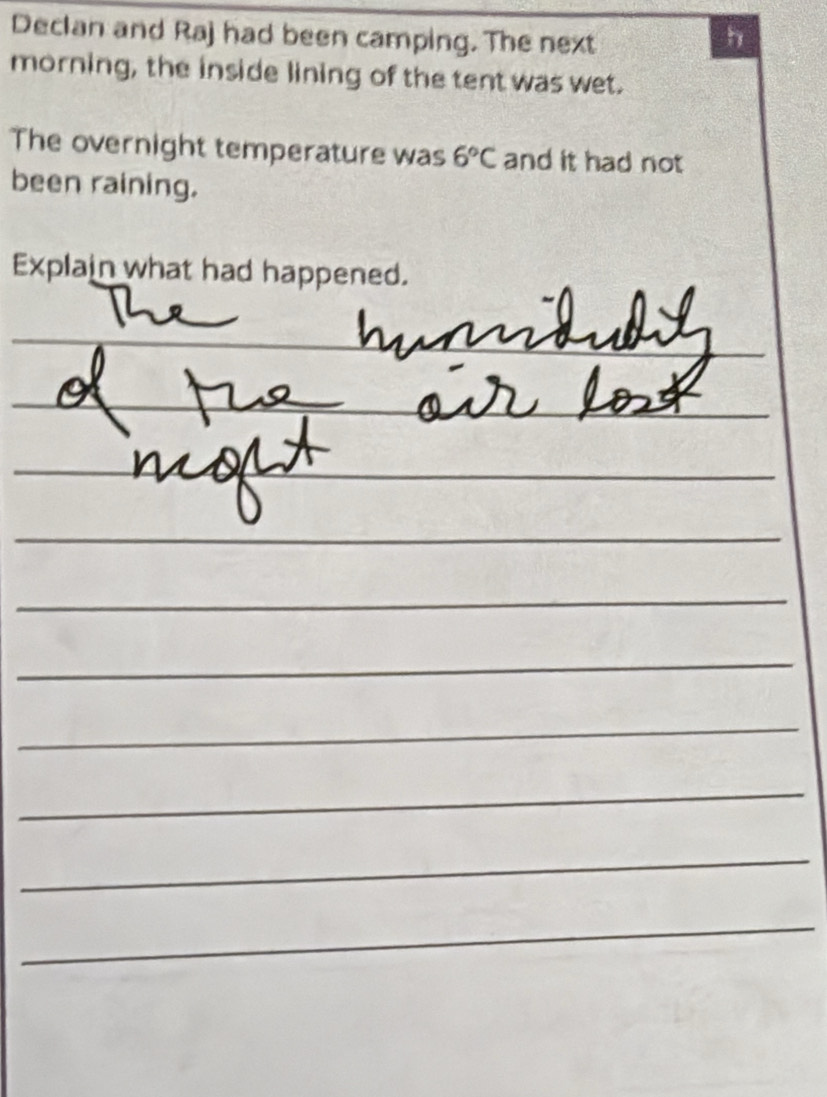 Declan and Raj had been camping. The next
h
morning, the inside lining of the tent was wet.
The overnight temperature was 6°C and it had not
been raining.
Explain what had happened.
The humidudity
of the air last
night